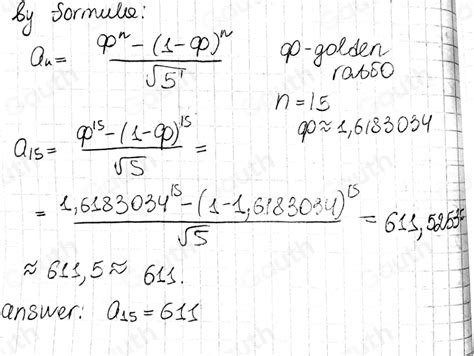 By formula:
aₙ = φⁿ − (1−φ)ⁿ / √5
φ - golden
ratio
n = 15
φ ≈ 1,6183034
a₁₅ = φ¹⁵ − (1−φ)¹⁵ / √5 =
= 1,6183034¹⁵ − (1−1,6183034)¹⁵ / √5 = 611,5253
≈ 611,5 ≈ 611.
answer: a₁₅ = 611